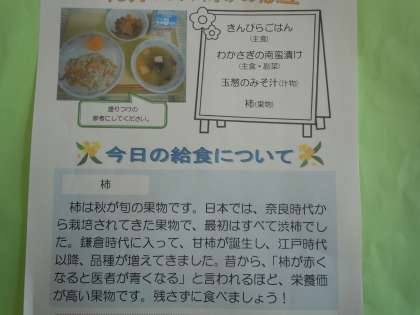 きんぴらごはん
(主食)
わかさぎの南蛮漬け
(主食・副菜)
玉葱のみそ汁(汁物)
柿(果物)
盛りつけの
参考にしてください。
今日の給食について
柿
柿は秋が旬の果物です。日本では、奈良時代か
ら栽培されてきた果物で、最初はすべて渋柿でし
た。鎌倉時代に入って、甘柿が誕生し、江戸時代
以降、品種が増えてきました。昔から、「柿が赤く
なると医者が青くなる」と言われるほど、栄養価
が高い果物です。残さずに食べましょう！